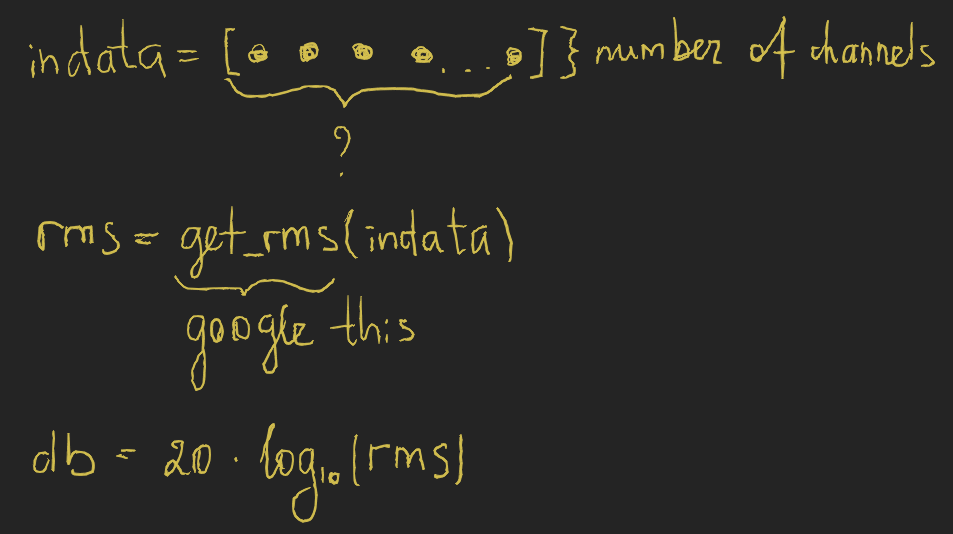 indata = [ • • • • . . . • ] } number of channels
?
rms = get_rms(indata)
google this
db = 20 · log₁₀(rms)